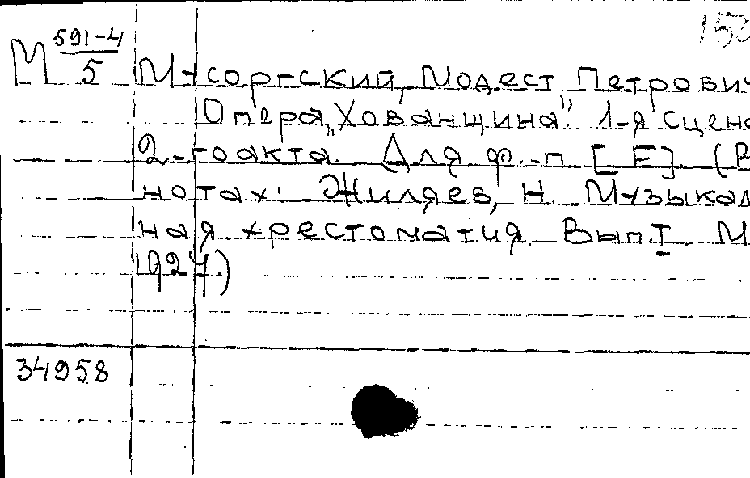 153
М 591-4/5 Мусоргский, Модест Петрович
Опера „Хованщина". 1-я сцена
2-го акта. Для ф.-п. [E]. (В
нотах: Жиляев, Н. Музыкаль
ная хрестоматия. Вып. I. М.
1927.)
34958